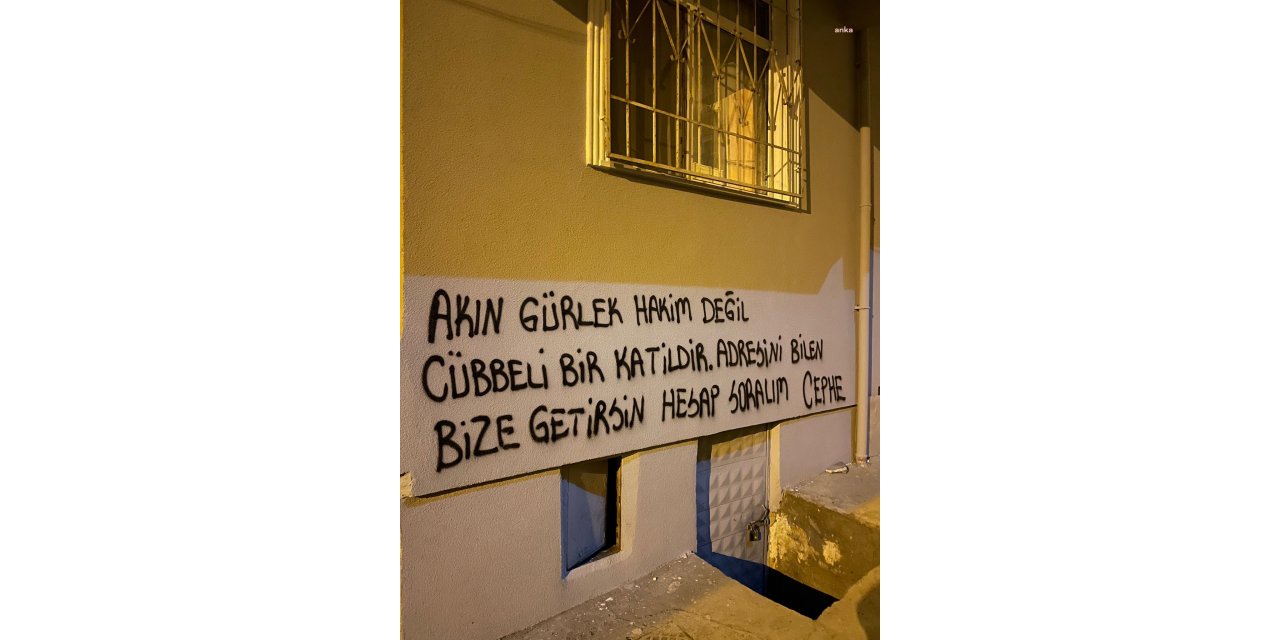 anka
AKIN GÜRLEK HAKİM DEĞİL
CÜBBELİ BİR KATİLDİR. ADRESİNİ BİLEN
BİZE GETİRSİN HESAP SORALIM CEPHE